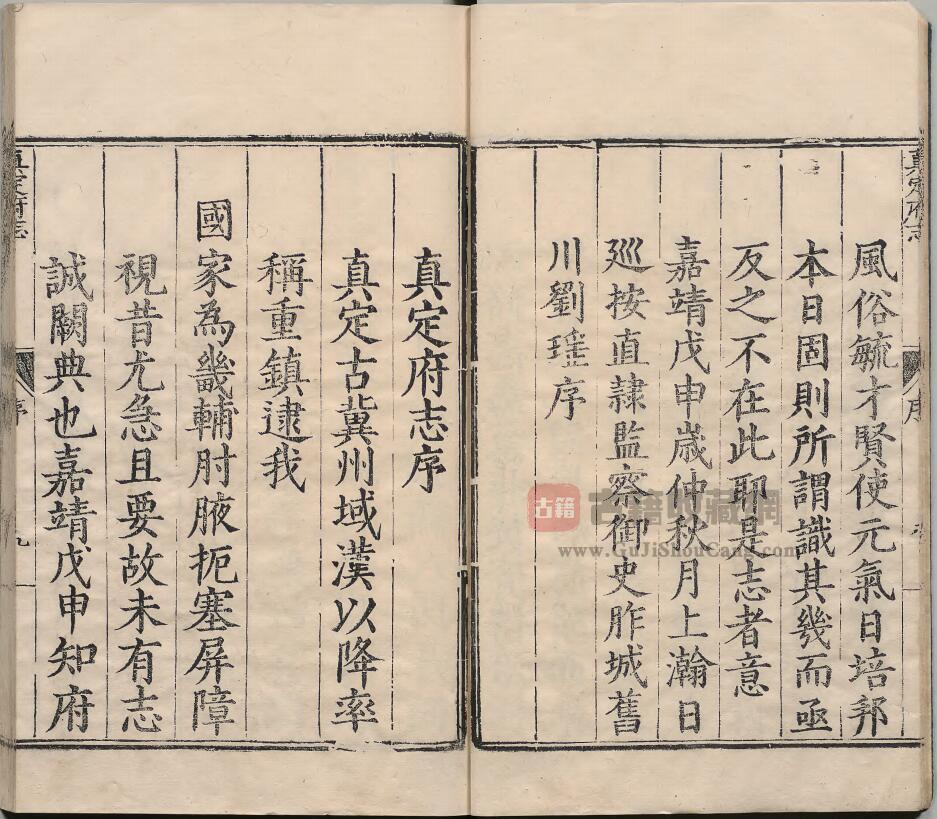 真定府志
序
風俗毓才賢使元氣日培邦
本日固則所謂識其幾而亟
反之不在此耶是志者意
嘉靖戊申歲仲秋月上澣日
巡按直隸監察御史胙城舊
川劉瑤序
真定府志序
真定古冀州域漢以降率
稱重鎮逮我
國家為畿輔肘腋扼塞屏障
視昔尤急且要故未有志
誠闕典也嘉靖戊申知府
真定府志
序
九
古籍
古籍收藏網
www.GuJiShouCang.com